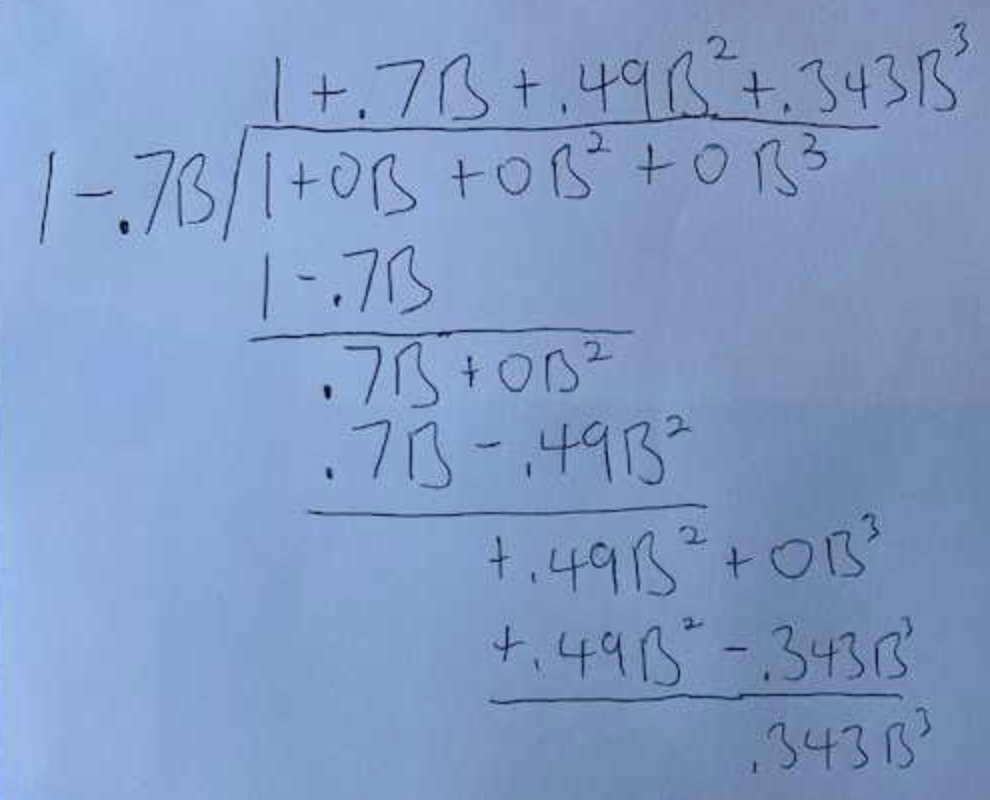 1 + .7B + .49B² + .343B³
1 - .7B / 1 + 0B + 0B² + 0B³
1 - .7B
.7B + 0B²
.7B - .49B²
+ .49B² + 0B³
+ .49B² - .343B³
.343B³